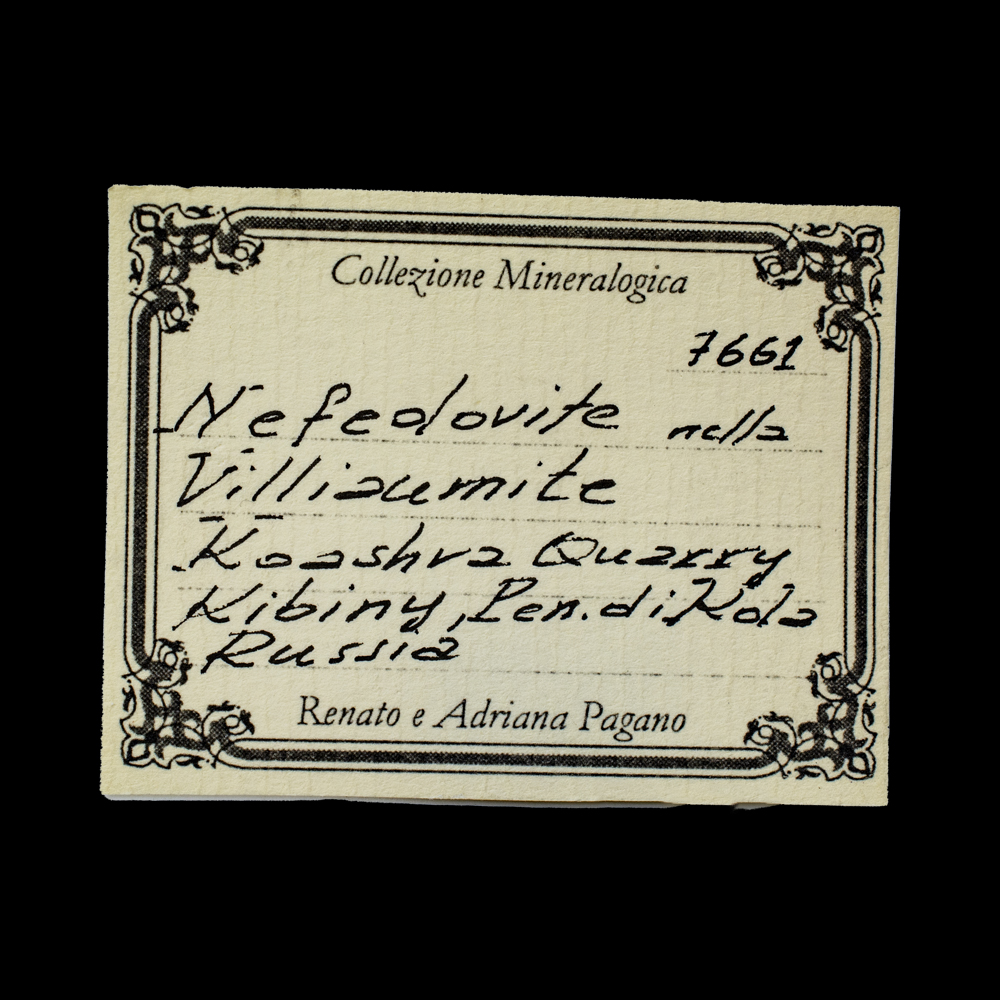 Collezione Mineralogica
7661
Nefedovite nella
Villiaumite
Koashva Quarry
Kibiny, Pen. di Kola
Russia
Renato e Adriana Pagano